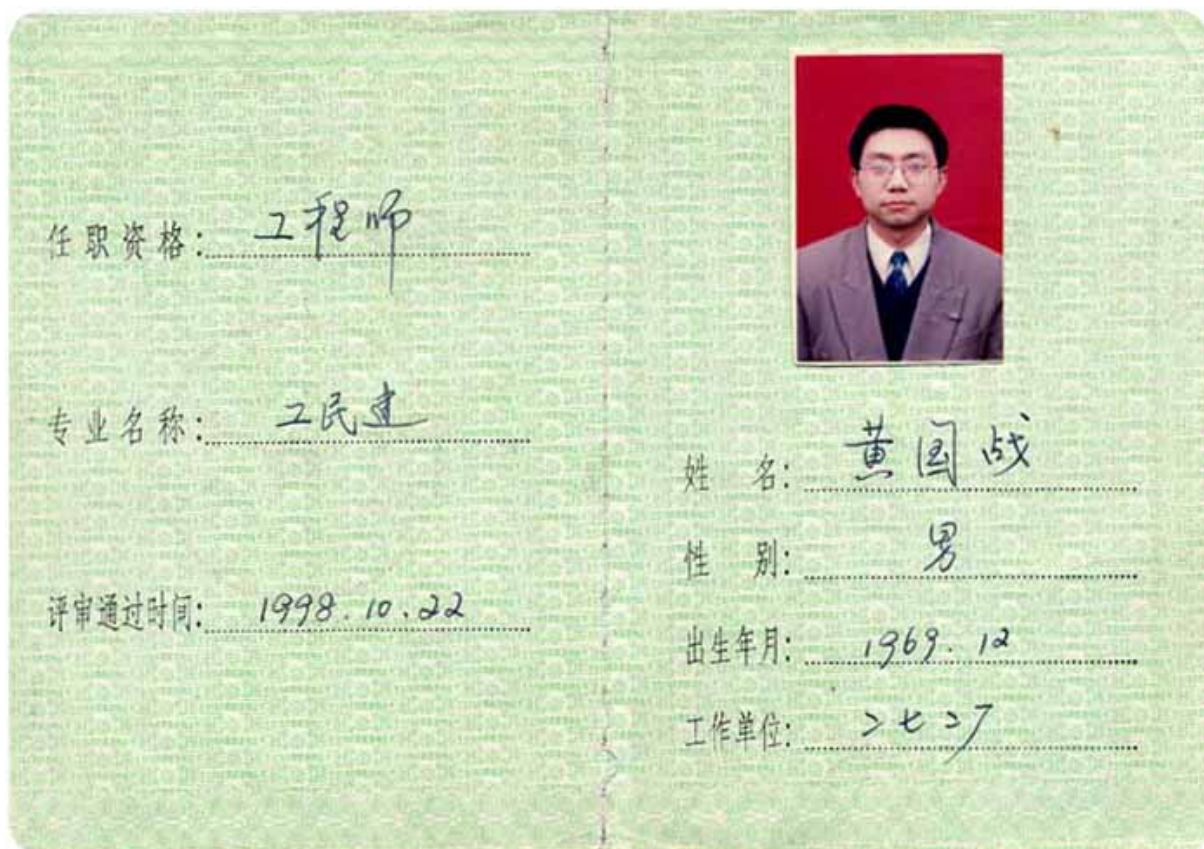 任职资格：工程师
专业名称：工民建
评审通过时间：1998.10.22
姓名：黄国战
性别：男
出生年月：1969.12
工作单位：二七二厂